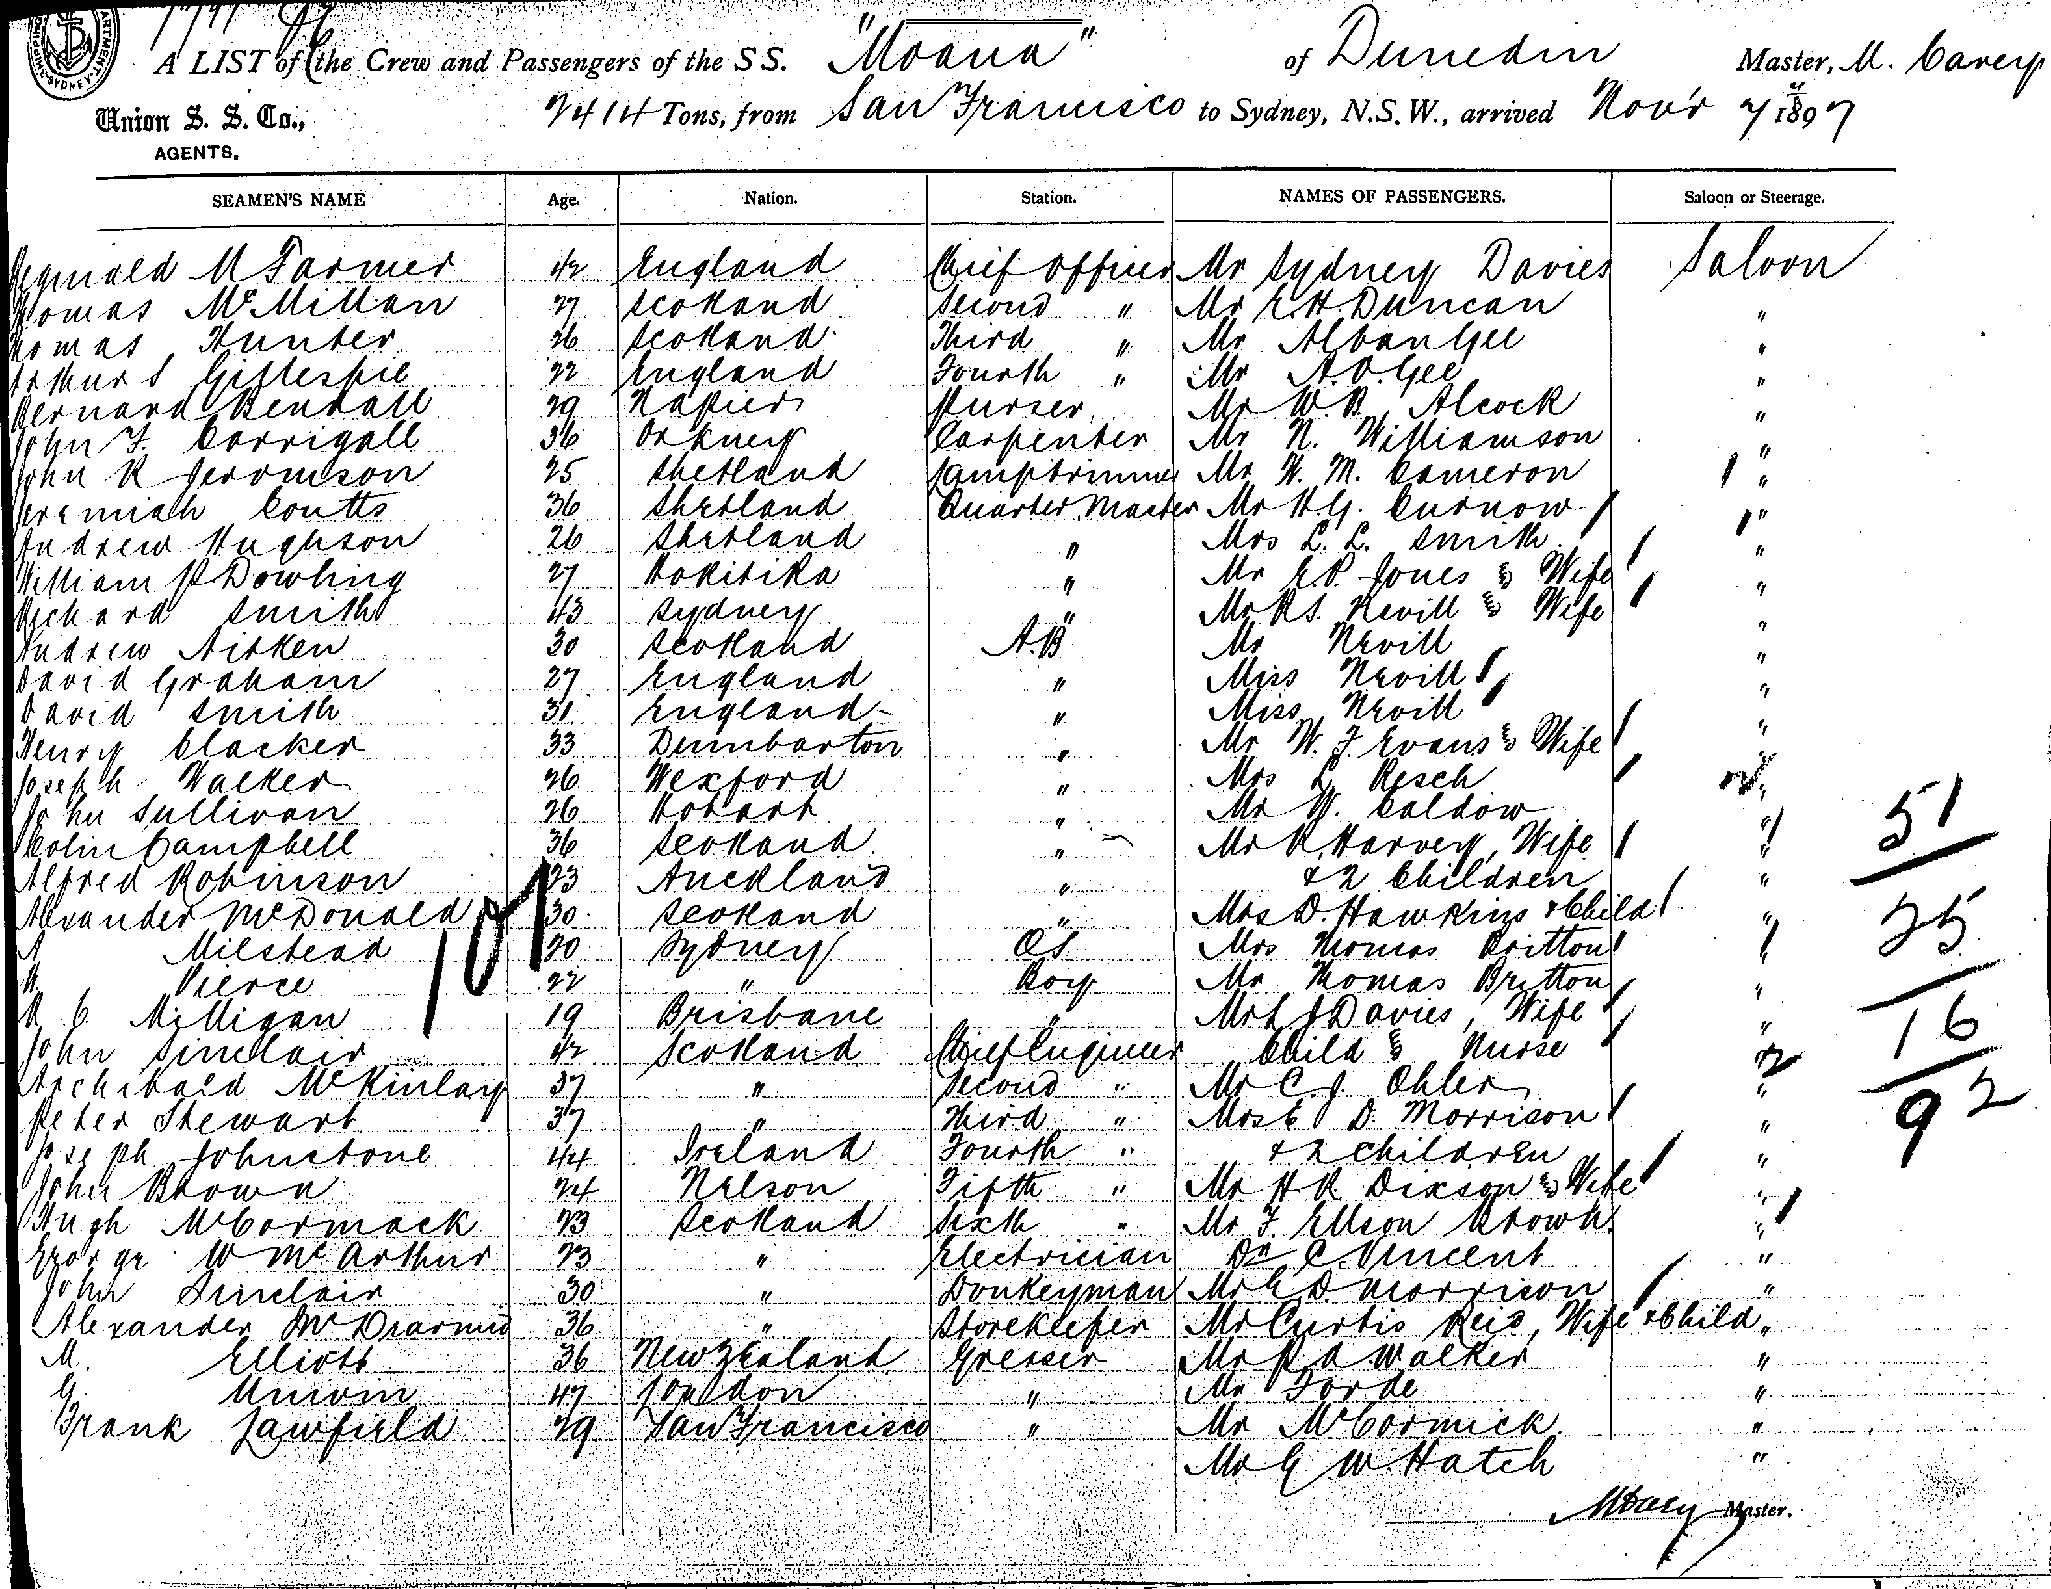 "Moana"
A LIST of the Crew and Passengers of the S S. of Dunedin Master, M. Carey
Union S. S. Co., 2414 Tons, from San Francisco to Sydney, N.S.W., arrived Nov'r 7 1897
AGENTS.
SEAMEN'S NAME Age. Nation. Station. NAMES OF PASSENGERS. Saloon or Steerage.
Reginald M Farmer 42 England Chief Officer Mr Sydney Davies Saloon
Thomas McMillan 27 Scotland Second " Mr E. H. Duncan "
Thomas Hunter 26 Scotland Third " Mr Alban Gee "
Arthur S Gillespie 22 England Fourth " Mr A. O. Gee "
Bernard Bendall 29 Napier Purser Mr W. B. Alcock "
John F. Corrigall 36 Orkney Carpenter Mr N. Williamson "
John R Jeromson 25 Shetland Lamptrimmer Mr W. M. Cameron "
Jeremiah Coutts 36 Shetland Quarter Master Mr H. G. Curnow "
Andrew Hughson 26 Shetland " Mrs L. L. Smith "
William P Dowling 27 Hokitika " Mr E P. Jones & Wife "
Richard Smith 43 Sydney " Mr R S. Nevill & Wife "
Andrew Aitken 30 Scotland A.B Mr Nevill "
David Graham 27 England " Miss Nevill "
David Smith 31 England " Miss Nevill "
Henry Clacker 33 Dumbarton " Mr W. J Evans & Wife "
Joseph Walker 26 Wexford " Mrs L Resch "
John Sullivan 26 Hobart " Mr W. Caldow "
Colin Campbell 36 Scotland " Mr R. Harvey, Wife "
Alfred Robinson 23 Auckland " & 2 Children "
Alexander McDonald 30 Scotland " Mrs D. Hawkins & Child "
A Milstead 20 Sydney OS Mrs Thomas Britton "
H. Pierce 22 " Boy Mr Thomas Britton "
R C Milligan 19 Brisbane " Mr L J Davies, Wife "
John Sinclair 42 Scotland Chief Engineer Child & Nurse "
Archibald McKinlay 37 " Second " Mr C. J. Ohler "
Peter Stewart 37 " Third " Mrs E D. Morrison "
Joseph Johnstone 44 Ireland Fourth " & 2 children "
John Brown 24 Nelson Fifth " Mr H R Dixson & Wife "
Hugh McCormack 23 Scotland Sixth " Mr F. Ellson Brown "
George W McArthur 23 " Electrician Dr C. Vincent "
John Sinclair 30 " Donkeyman Mr E D Morrison "
Alexander McDiarmid 36 " Storekeeper Mr Curtis Reid, Wife & Child "
M. Elliott 36 New Zealand Greaser Mr P A Walker "
G. 47 London " Mr Forde "
Frank Lawfield 29 San Francisco " Mr McCormick "
Mr E W. Hatch "
107
51
25
16
92
MCarey Master.